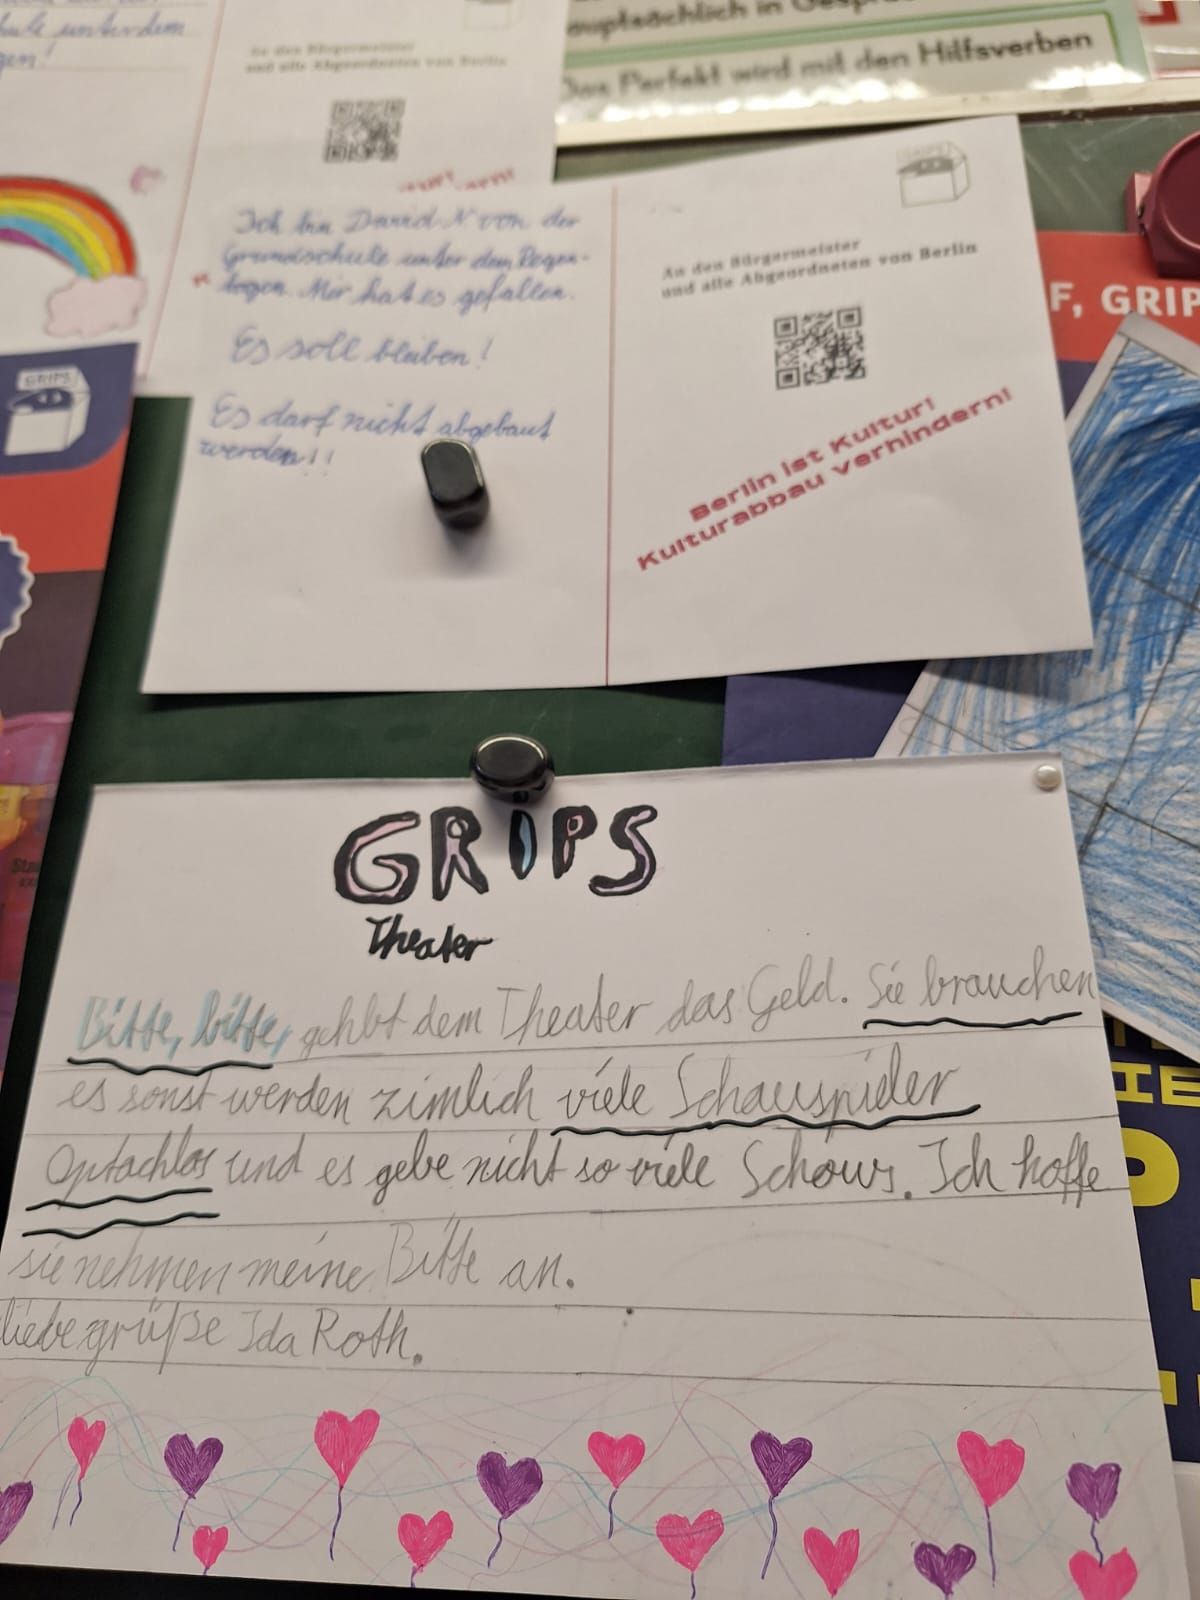 hule unterdem
gen!
An den Bürgermeister
und alle Abgeordneten von Berlin
hauptsächlich in
Das Perfekt wird mit den Hilfsverben
Ich bin David N von der
Grundschule unter dem Regen-
bogen. Mir hat es gefallen.
Es soll bleiben!
Es darf nicht abgebaut
werden!!
GRIPS
An den Bürgermeister
und alle Abgeordneten von Berlin
Berlin ist Kultur!
Kulturabbau verhindern!
F, GRIP
GRIPS
GRIPS
Theater
Bitte, bitte, gehbt dem Theater das Geld. Sie brauchen
es sonst werden zimlich viele Schauspieler
Optachlos und es gebe nicht so viele Schows. Ich hoffe
sie nehmen meine Bitte an.
liebe grüße Ida Roth.